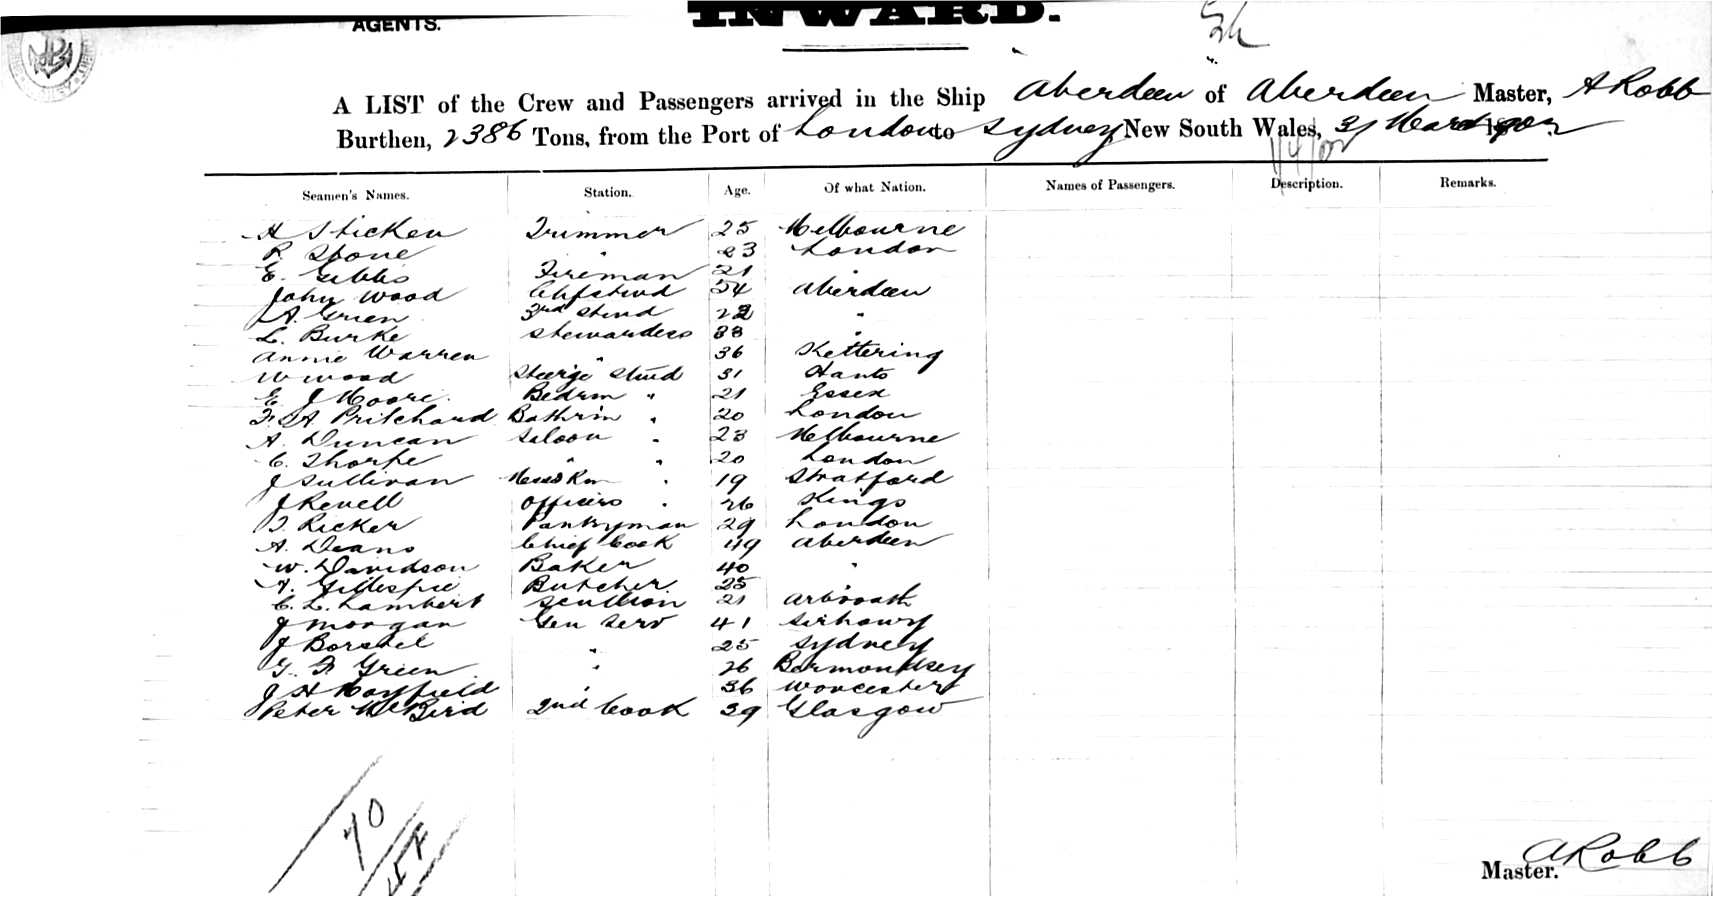 AGENTS.
INWARD.
A LIST of the Crew and Passengers arrived in the Ship Aberdeen of Aberdeen Master, A Robb
Burthen, 2386 Tons, from the Port of London to Sydney New South Wales, 31 March
1/4/02
Seamen's Names. Station. Age. Of what Nation. Names of Passengers. Description. Remarks.
A Sticken Trimmer 25 Melbourne
R Stone " 23 London
E. Gibbs Fireman 21 "
John Wood Chfstwd 54 Aberdeen
A. Green 3rd Stwd 22 "
L. Burke Stewardess 33 "
Annie Warren " 36 Kettering
W Wood Steerge Stwd 31 Hants
E J Moore. Bedrm " 21 Essex
F. A Pritchard Bathrm " 20 London
A. Duncan Saloon " 23 Melbourne
C. Thorpe " " 20 London
J Sullivan Mess Rm " 19 Stratford
J Revell Officers " 26 Kings
T. Ricker Pantryman 29 London
A. Deans Chief Cook 49 Aberdeen
W. Davidson Baker 40 "
A. Gillespie Butcher 25 "
C. L. Lambert Scullion 21 Arbroath
J Morgan Gen Serv 41 Sirhowy
J Borstel " 25 Sydney
G. F Green " 26 Bermondsey
J H Mayfield " 36 Worcester
Peter Mc Bird 2nd Cook 39 Glasgow
70
A Robb
Master.